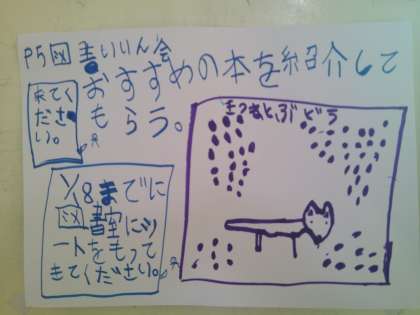 P5図書いいん会
おすすめの本を紹介して
もらう。
来てく
ださ
い。
きつねとぶどう
1/8までに
図書室に
ートをもって
きてください。